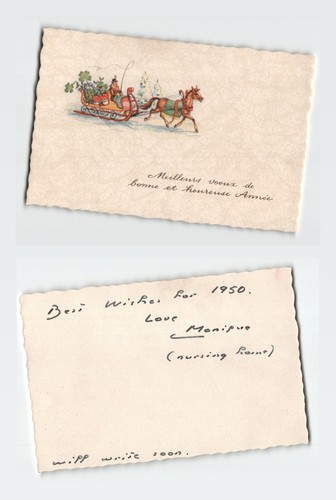 Meilleurs voeux de
bonne et heureuse Année
Best Wishes for 1950.
Love
Monique
(nursing home)
will write soon.